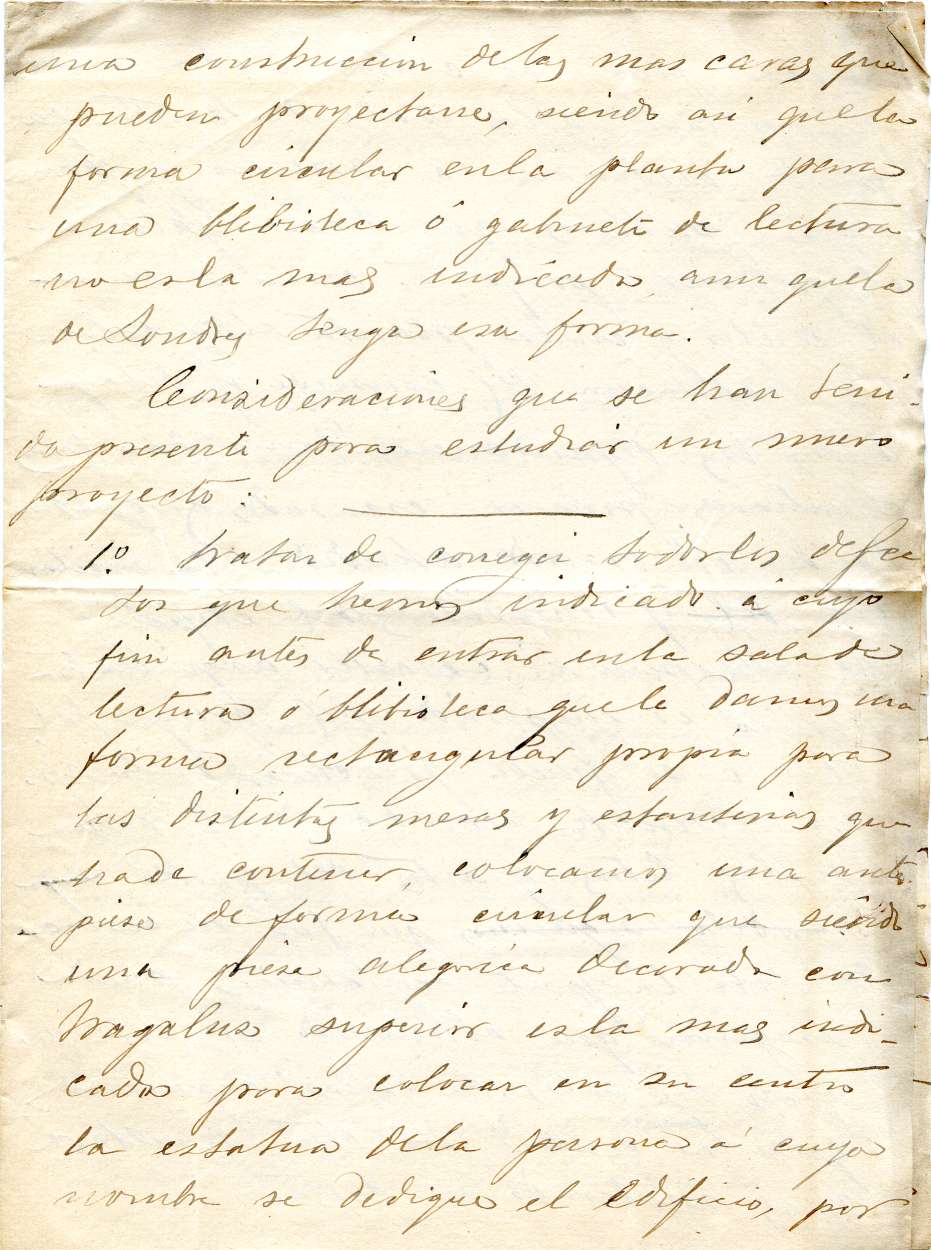 una construccion de las mas caras que
pueden proyectarse, siendo asi que la
forma circular en la planta para
una blibioteca ó gabinete de lectura
no es la mas indicada aun que la
de Londres tenga esa forma.
Consideraciones que se han teni-
do presente para estudiar un nuevo
proyecto:
1º. tratar de corregir todos los defec
tos que hemos indicado á cuyo
fin antes de entrar en la sala de
lectura ó blibioteca que le damos una
forma rectangular propia para
las distintas mesas y estanterias que
ha de contener, colocamos una ante
piesa de forma circular que siendo
una piesa alegorica decorada con
tragalus superior es la mas indi-
cada para colocar en su centro
la estatua de la persona á cuyo
nombre se dedique el edificio, por